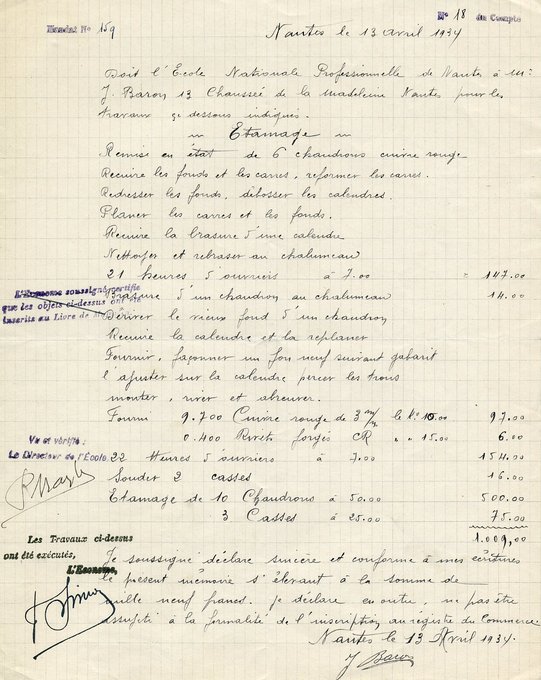 Mandat N° 159
N° 18 du Compte
Nantes le 13 Avril 1934
Doit l'École Nationale Professionnelle de Nantes à Mr
J. Baron 13 Chaussée de la Madeleine Nantes pour les
travaux ci dessous indiqués.
Etamage
Remise en état de 6 chaudrons cuivre rouge
Recuire les fonds et les carres, reformer les carres.
Redresser les fonds, débosser les calendres.
Planer les carres et les fonds.
Recuire la brasure d'une calendre
Nettoyer et rebraser au chalumeau
21 heures d'ouvriers à 7.00 " 147.00
Brasure d'un chaudron au chalumeau 14.00
Dériver le vieux fond d'un chaudron
Recuire la calendre et la replaner
Fournir, façonner un fon neuf suivant gabarit
l'ajuster sur la calendre percer les trous
monter, river et abreuver.
Fourni 9.700 Cuivre rouge de 3 m/m le K° 10.00 97.00
0.400 Rivets forgés CR " " 15.00 6.00
22 Heures d'ouvriers à 7.00 154.00
Souder 2 casses 16.00
Etamage de 10 Chaudrons à 50.00 500.00
3 Casses à 25.00 75.00
1.009,00
Je soussigné déclare sincère et conforme à mes écritures
le présent mémoire s'élevant à la somme de
mille neuf francs. je déclare en outre, ne pas être
assujeti à la formalité de l'inscription au registre du Commerce
Nantes le 13 Avril 1934.
J Baron
L'Econome soussigné certifie
que les objets ci-dessus ont été
inscrits au Livre de
Vu et vérifié :
Le Directeur de l'École,
Les Travaux ci-dessus
ont été exécutés,
L'Econome,